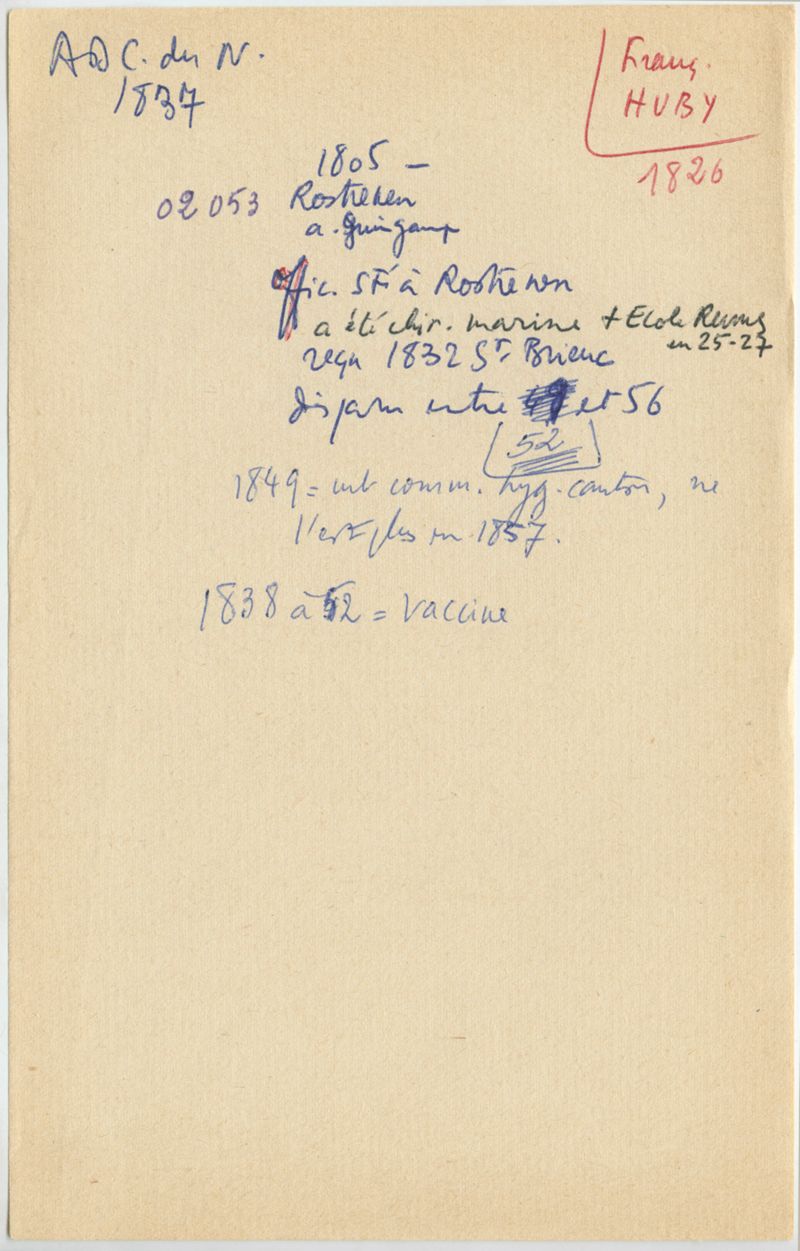 AD C. du N.
1837
Franç.
HUBY
1826
1805 -
02 053 Rostrenen
a. Guingamp
offic. SFé à Rostrenen
a été chir. marine + Ecole Rennes
en 25-27
reçu 1832 St Brieuc
disparu entre et 56
52
1849 = mb comm. hyg. canton, ne
l'est plus en 1857.
1838 à 52 = Vaccine